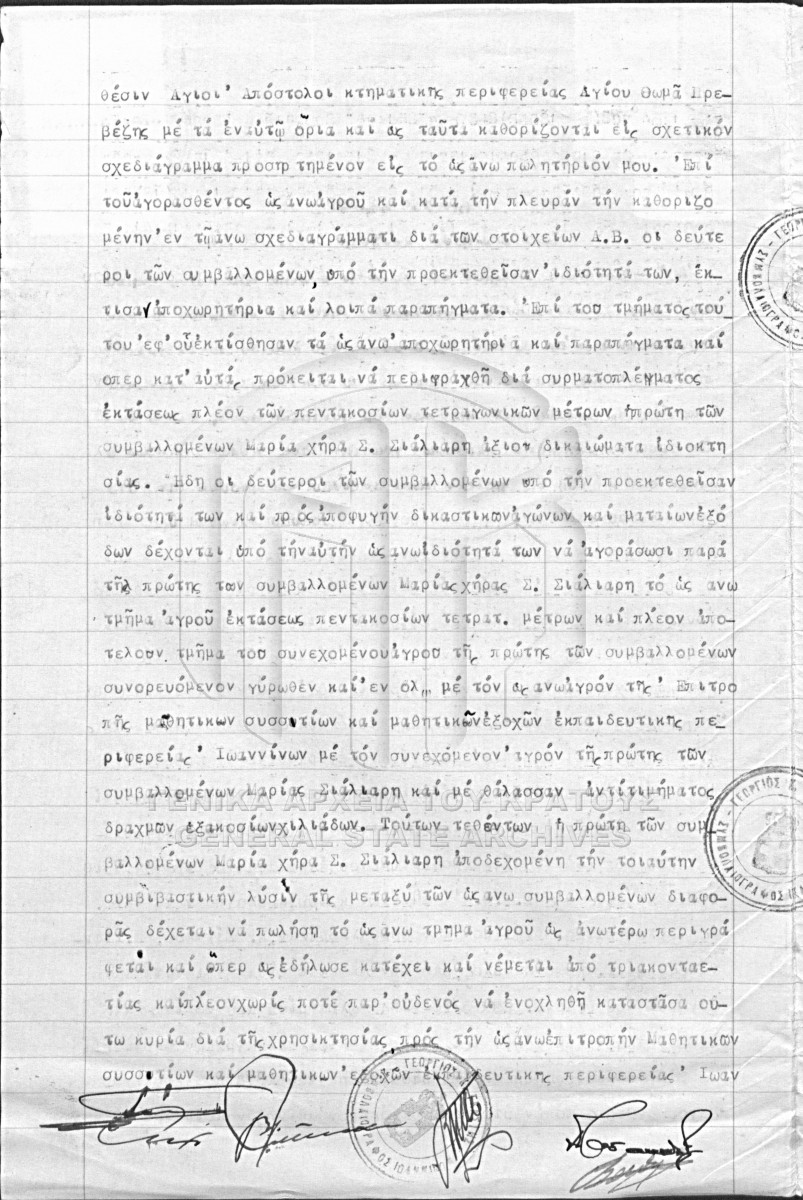 θέσιν Άγιοι' Απόστολοι κτηματικής περιφερείας Αγίου Θωμᾶ Πρε-
βέζης μέ τά ἐναὐτῷ ὅρια καί ὡς ταῦτα καθορίζονται εἰς σχετικόν
σχεδιάγραμμα προσηρτημένον εἰς τό ὡςἄνω πωλητήριόν μου. Ἐπί
τοῦἀγορασθέντος ὡςἄνωἀγροῦ καί κατά τήν πλευράν τήν καθοριζο
μένην'ἐν τῷἄνω σχεδιαγράμματι διά τῶν στοιχείων Α.Β. οι δεύτε
ροι τῶν συμβαλλομένων, ὑπό τήν προεκτεθεῖσαν'ιδιότητά των, ἔκ-
τισαν ἀποχωρητήρια καί λοιπά παραπήγματα. Ἐπί του τμήματος τού_
του ἐφ'οὗἐκτίσθησαν τά ὡςἄνω ἀποχωρητήρια καί παραπήγματα καί
οπερ κατ'αὐτάς πρόκειται νά περιφραχθῇ διά συρματοπλέγματος
ἐκτάσεως πλέον τῶν πεντακοσίων τετραγωνικῶν μέτρων ἡπρώτη τῶν
συμβαλλομένων Μαρία χήρα Σ. Σιάλιαρη ἀξιοῖ δικαιώματα ἰδιοκτη
σίας. Ἤδη οι δεύτεροι τῶν συμβαλλομένων ὑπό τήν προεκτεθεῖσαν
ἰδιότητά των καί πρόςἀποφυγήν δικαστικωνἀγώνων καί ματαίωνἐξό
δων δέχονται ὑπό τήναὐτήν ὡςἄνωἰδιότητά των νά ἀγοράσωσι παρά
τῆς πρώτης των συμβαλλομένων Μαρίας χήρας Σ. Σιάλιαρη τό ὡς ανω
τμῆμα ἀγροῦ ἐκτάσεως πεντακοσίων τετραγ. μέτρων καί πλέον ἀπο-
τελουν τμῆμα του συνεχομένουἀγρου τῆς πρώτης τῶν συμβαλλομένων
συνορευόμενον γύρωθεν καί'ἐν ὅλῳ μέ τόν ὡςἄνωἀγρόν τῆς' Επιτρο
πῆς μαθητικων συσσιτίων καί μαθητικῶνἐξοχῶν ἐκπαιδευτικῆς πε_
ριφερείας' Ιωαννίνων μέ τόν συνεχόμενον'ἀγρόν τῆςπρώτης τῶν
συμβαλλομένων Μαρίας Σιάλιαρη καί μέ θάλασσαν ἀντίτιμήματος
δραχμῶν ἑξακοσίωνχιλιάδων. Τούτων τεθέντων ἡ πρώτη τῶν συμ_
βαλλομένων Μαρία χήρα Σ. Σιάλιαρη ἀποδεχομένη τήν τοιαύτην
συμβιβαστικήν λύσιν τῆς μεταξύ τῶν ὡςἄνω συμβαλλομένων διαφο-
ρᾶς δέχεται νά πωλήσῃ τό ὡςἄνω τμημα ἀγροῦ ὡς ἀνωτέρω περιγρά
φεται καί ὅπερ ὡςἐδήλωσε κατέχει καί νέμεται ἀπό τριακονταε-
τίας καίπλεονχωρίς ποτέ παρ'οὐδενός νά ἐνοχληθῇ καταστᾶσα οὕ-
τω κυρία διά τῆςχρησικτησίας πρός τήν ὡςἄνωἐπιτροπήν Μαθητικῶν
συσσιτίων καί μαθητικων'ἐξοχῶν ἐκπαιδευτικης περιφερείας' Ιωαν
ΓΕΝΙΚΑ ΑΡΧΕΙΑ ΤΟΥ ΚΡΑΤΟΥΣ
GENERAL STATE ARCHIVES